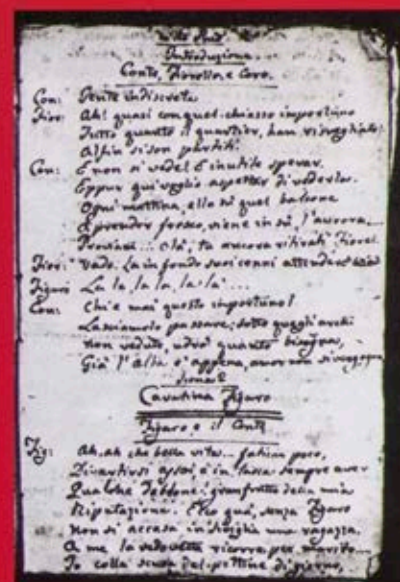 Introduzione.
Conte, Fiorello, e Coro.
Con: Gente indiscreta
Fior: Ah! quasi con quel chiasso importuno
Tutto quanto il quartier, han risvegliato!
Alfin si son partiti.
Con: E non si vede! È inutile sperar.
Eppur qui voglio aspettar di vederla.
Ogni mattina, ella su quel balcone
A prender fresco, viene in su l'aurora.
Proviamo... Olà, tu ancora ritirati Fiorel.
Fior: Vado. Là in fondo suoi cenni attenderò
Figaro La la la la, la la'...
Con: Chi è mai questo importuno!
Lasciamolo passare; sotto quegli archi
non veduto, vedrò quanto bisogna,
Già l'alba è appena, amor non si vergogna
Scena 2
Cavatina Figaro
Figaro, e il Conte
Fig: Ah, ah che bella vita... fatica poco,
Divertirsi assai, e in tasca sempre aver
Qualche dobbone: gran frutto della mia
Riputazione. Ecco quà, senza Figaro
Non si accasa in Siviglia una ragazza.
A me la vedovella ricorre per marito...
Io colla scusa del pettine di giorno,